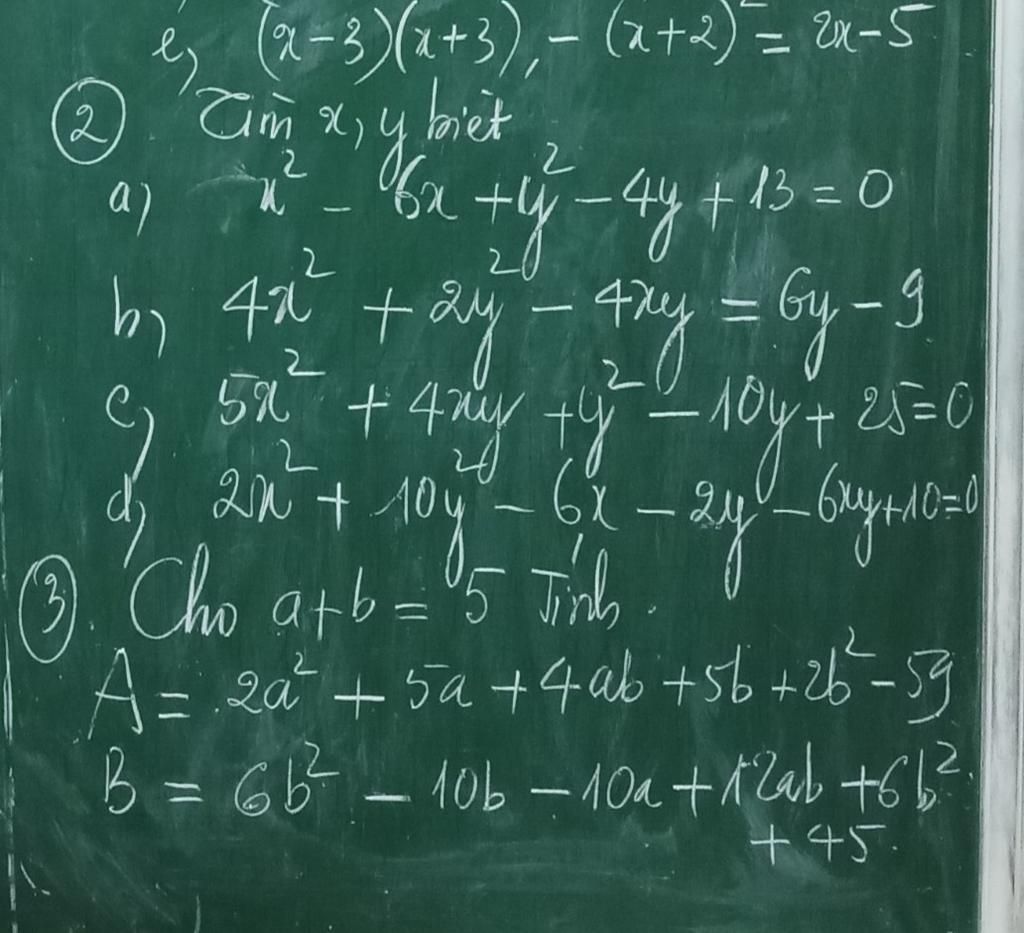 e, (x-3)(x+3), - (x+2)² = 2x-5
② Tìm x, y biết
a, x² - 6x + y² - 4y + 13 = 0
b, 4x² + 2y² - 4xy = 6y - 9
c, 5x² + 4xy + y² - 10y + 25 = 0
d, 2x² + 10y² - 6x - 2y - 6xy + 10 = 0
③. Cho a+b = 5 Tính.
A = 2a² + 5a + 4ab + 5b + 2b² - 59
B = 6b² - 10b - 10a + 12ab + 6b²
+ 45.